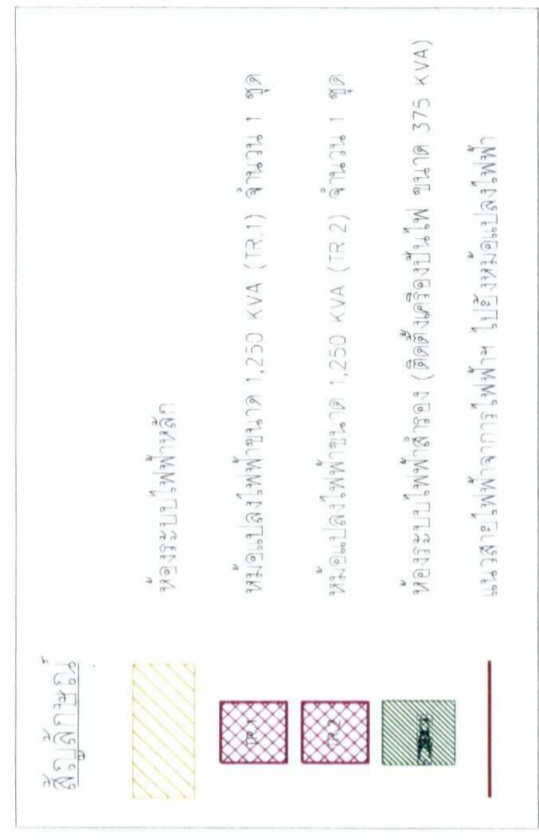 สัญลักษณ์
ห้องระบบไฟฟ้าหลัก
TR.1
หม้อแปลงไฟฟ้าขนาด 1,250 KVA (TR.1) จำนวน 1 ชุด
TR.2
หม้อแปลงไฟฟ้าขนาด 1,250 KVA (TR.2) จำนวน 1 ชุด
ห้องระบบไฟฟ้าสำรอง (ติดตั้งเครื่องปั่นไฟ ขนาด 375 KVA)
แนวสายไฟฟ้าจากการไฟฟ้าฯ ไปยังหม้อแปลงไฟฟ้า